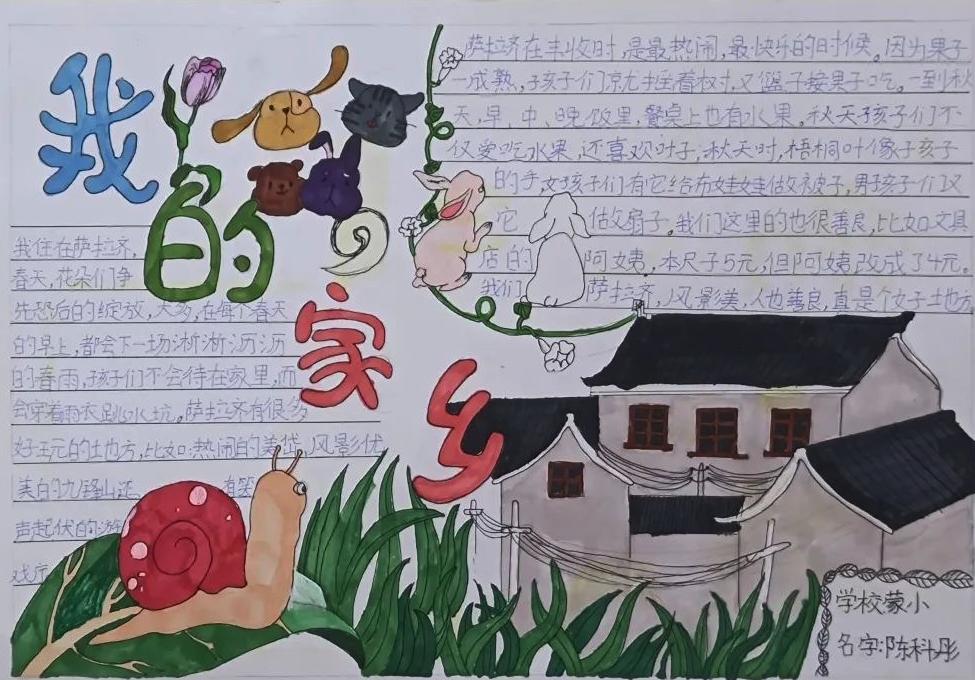 我的家乡
我住在萨拉济,
春天,花朵们争
先恐后的绽放,大多,在每个春天
的早上,都会下一场淅淅沥沥
的春雨,孩子们不会待在家里,而
会穿着雨衣跳水坑。萨拉济有很多
好玩的地方,比如:热闹的美岱,风景优
美的九锋山还 有笑
声起伏的游
戏厅
萨拉济在丰收时,是最热闹,最快乐的时候。因为果子
一成熟,孩子们就拄着树,又篮子接果子吃。一到秋
天,早、中、晚饭里,餐桌上也有水果。秋天孩子们不
仅爱吃水果,还喜欢叶子,秋天时,梧桐叶像子孩子
的手,女孩子们有它给布娃娃做被子,男孩子们又
它 做扇子。我们这里的也很善良,比如文具
店的 阿姨,本尺子5元,但阿姨改成了4元。
我们 萨拉济,风景美,人也善良,真是个好地方
学校蒙小
名字:陈科彤